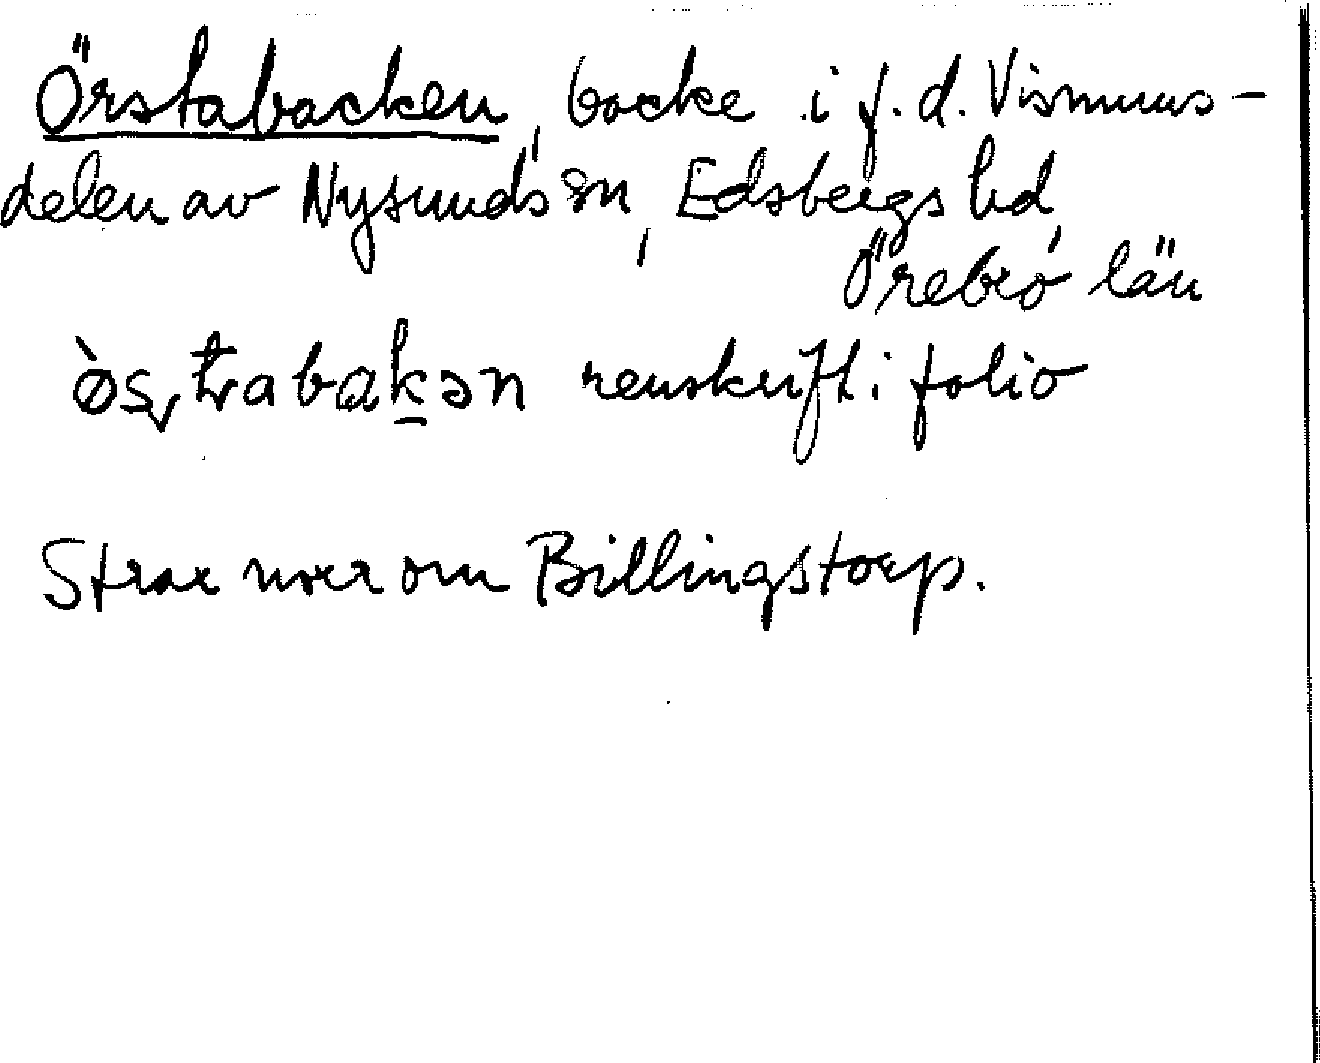 Örstabacken, backe i f.d. Vismms-
delen av Nysunds sn, Edsbergs hd,
Örebro län
renskrift i folio
Strax norr om Billingstorp.